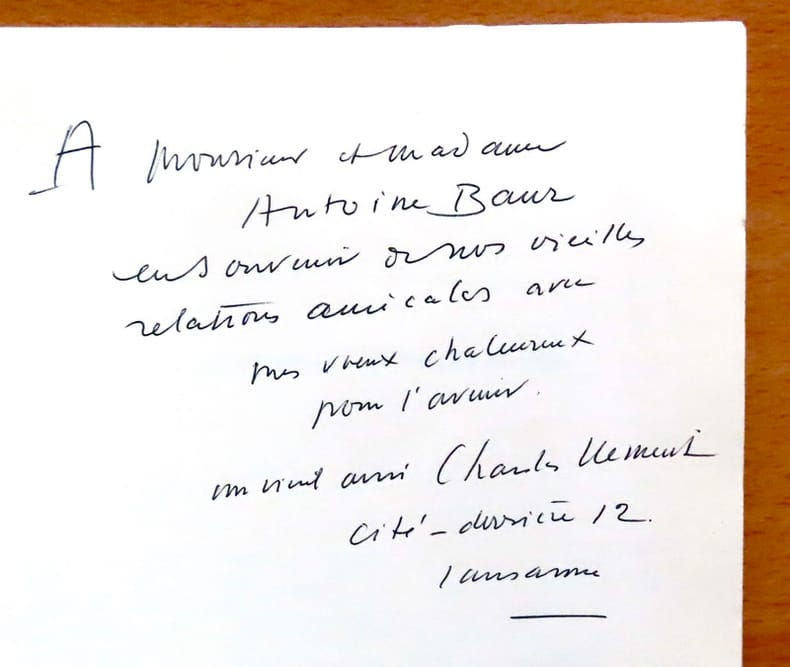 A Monsieur et madame
Antoine Baur
en souvenir de nos vieilles
relations amicales avec
mes vœux chaleureux
pour l'avenir.
un vieil ami Charles Clement
Cité-derrière 12.
Lausanne